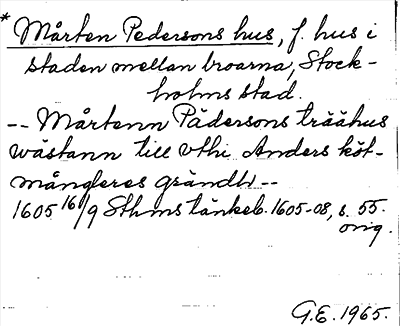 * Mårten Pedersons hus, f. hus i
staden mellan broarna, Stock-
holms stad.
-- Mårtenn Pädersons träähus
wästann till vthi Anders köt-
mångleres grändh --
1605 16/9 Sthms tänkeb. 1605-08, s. 55.
orig.
G.E. 1965.